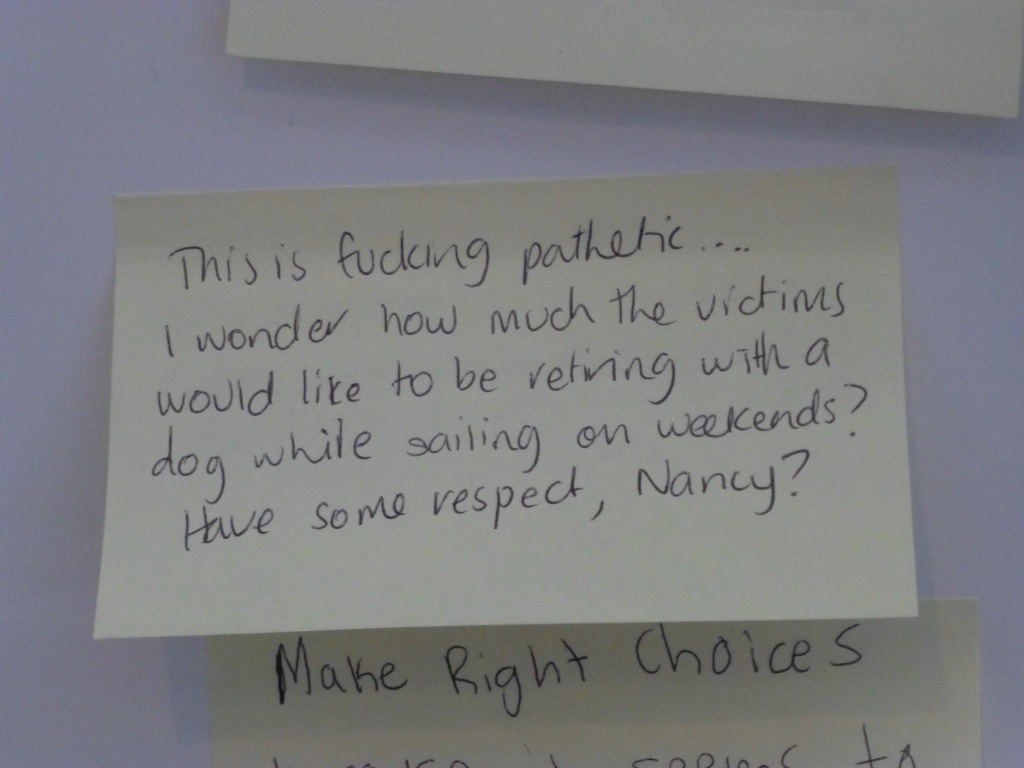 This is fucking pathetic....
I wonder how much the victims
would like to be retiring with a
dog while sailing on weekends?
Have some respect, Nancy?
Make Right Choices
seems to